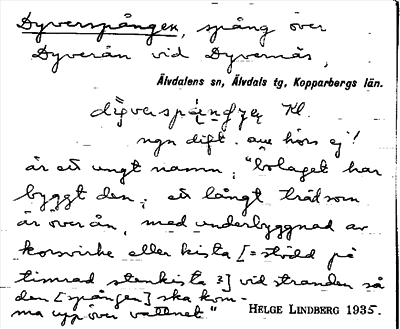 Dyverspången, spång över
Dyverån vid Dyvernäs,
Älvdalens sn, Älvdals tg, Kopparbergs län.
Kl.
ngn dift. au hörs ej!
är ett ungt namn; "bolaget har
byggt den; ett långt träd som
är över ån, med underbyggnad av
korsvirke eller kista [= stödd på
timrad stenkista ?] vid stranden så
den [spången] ska kom-
ma upp över vattnet"
HELGE LINDBERG 1935.